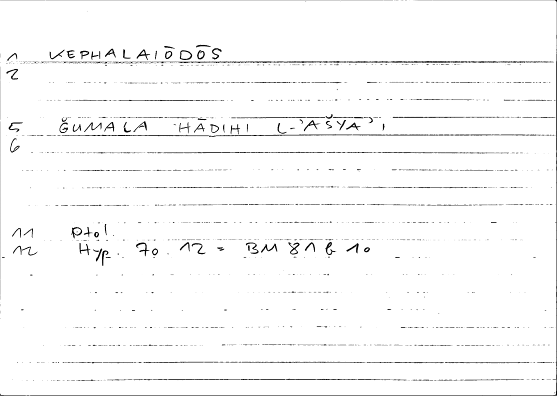 1 KEPHALAIŌDŌS
2
5 ĞUMALA HĀDIHI L-'AŠYĀ'I
6
11 Ptol.
12 Hyp. 70. 12 = BM 81 b 10